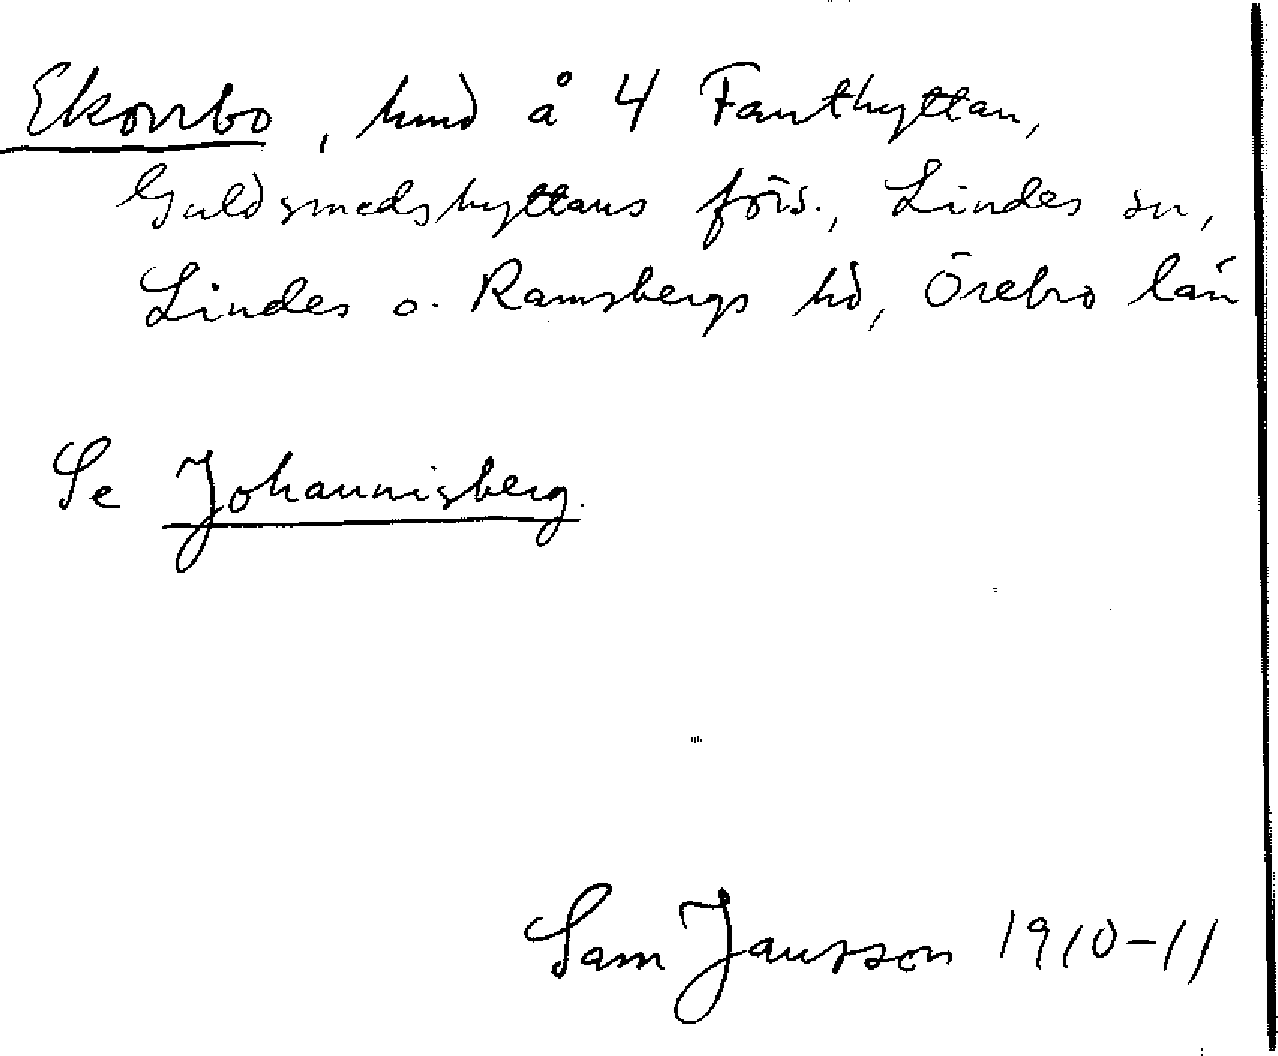 Ekorrbo, hmd å 4 Fanthyttan,
Guldsmedshyttans förs., Lindes sn,
Lindes o. Ramsbergs hd, Örebro län
Se Johannisberg.
Sam Jansson 1910-11